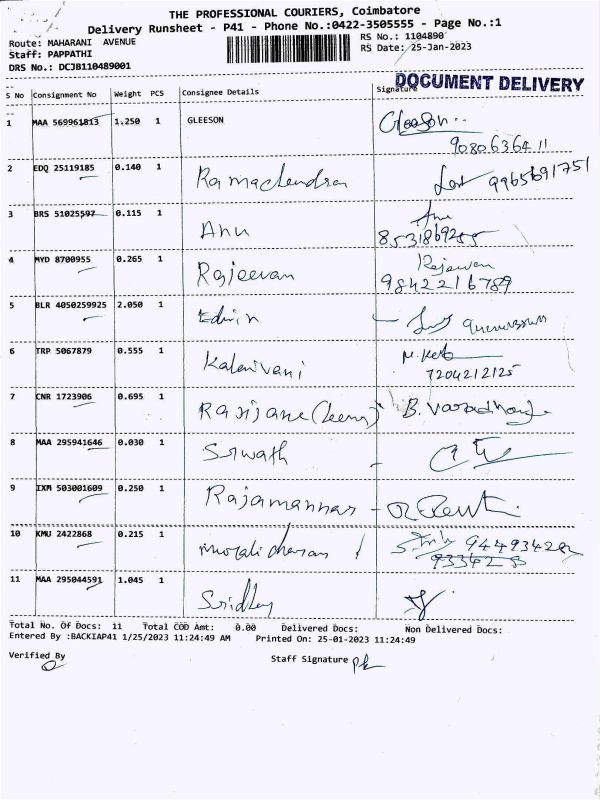 THE PROFESSIONAL COURIERS, Coimbatore
Delivery Runsheet - P41 - Phone No.:0422-3505555 - Page No.:1
Route: MAHARANI AVENUE RS No.: 1104890
Staff: PAPPATHI RS Date: 25-Jan-2023
DRS No.: DCJB110489001
DOCUMENT DELIVERY
S No Consignment No Weight PCS Consignee Details Signature
1 MAA 569961813 1.250 1 GLEESON Gleeson
9080636411
2 EDQ 25119185 0.140 1 Ramachendran 9965691751
3 BRS 51025597 0.115 1 Anu Anu
8531869255
4 MYD 8700955 0.265 1 Rajeevan Rajeevan
9842216789
5 BLR 4050259925 2.050 1 Edwin
6 TRP 5067879 0.555 1 Kalaivani
7204212125
7 CNR 1723906 0.695 1 B. Varadhan
8 MAA 295941646 0.030 1 Srwath
9 IXM 503001609 0.250 1 Rajamannar
10 KMU 2422868 0.215 1 muralidharan
11 MAA 295044591 1.045 1 Sridhar
Total No. Of Docs: 11 Total COD Amt: 0.00 Delivered Docs: Non Delivered Docs:
Entered By :BACKIAP41 1/25/2023 11:24:49 AM Printed On: 25-01-2023 11:24:49
Verified By Staff Signature